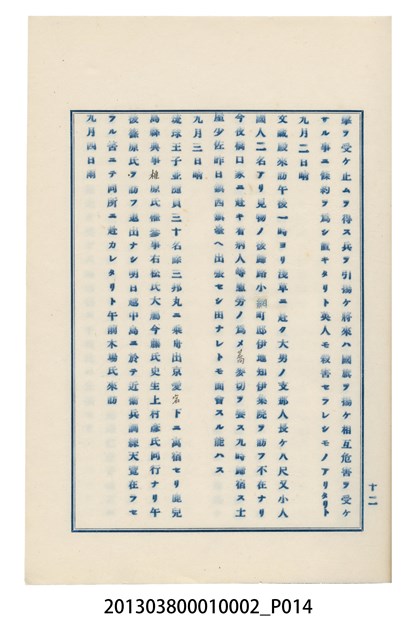 擊ヲ受ケ止ムヲ得ス兵ヲ引揚ケ將來ハ國旗ヲ揚ケ相互危害ヲ受ケ
サル事ニ條約ヲ為シ置キタリト英人モ殺害セラレシモノアリタリト
九月二日晴
文藏殿來訪午後一時ヨリ淺草ニ赴ク大男ノ支那人長ケ八尺又小人
國人二名アリ見物ノ後歸路小網町邸伊地知伊集院ヲ訪フ不在ナリ
今夜樋口家ニ赴キ看病人等慰勞ノ為メ蕎麥切ヲ要ス九時歸宿ス土
屋少佐昨日鎮西鎮臺ヘ出張セシ由ナレトモ面會スル能ハス
九月三日晴
琉球王子並隨員三十名餘三邦丸ニ乘舟出京愛宕下ニ寓宿セリ鹿兒
島縣典事椎原氏權參事右松氏大屬今藤氏史生上村彥氏同行ナリ午
後篠原氏ヲ訪フ退出ナシ明日越中島ニ於テ近衞兵調練天覽在フセ
ラル筈ニテ同所ニ赴カレタリト午前木場氏來訪
九月四日雨
十二
201303800010002_P014